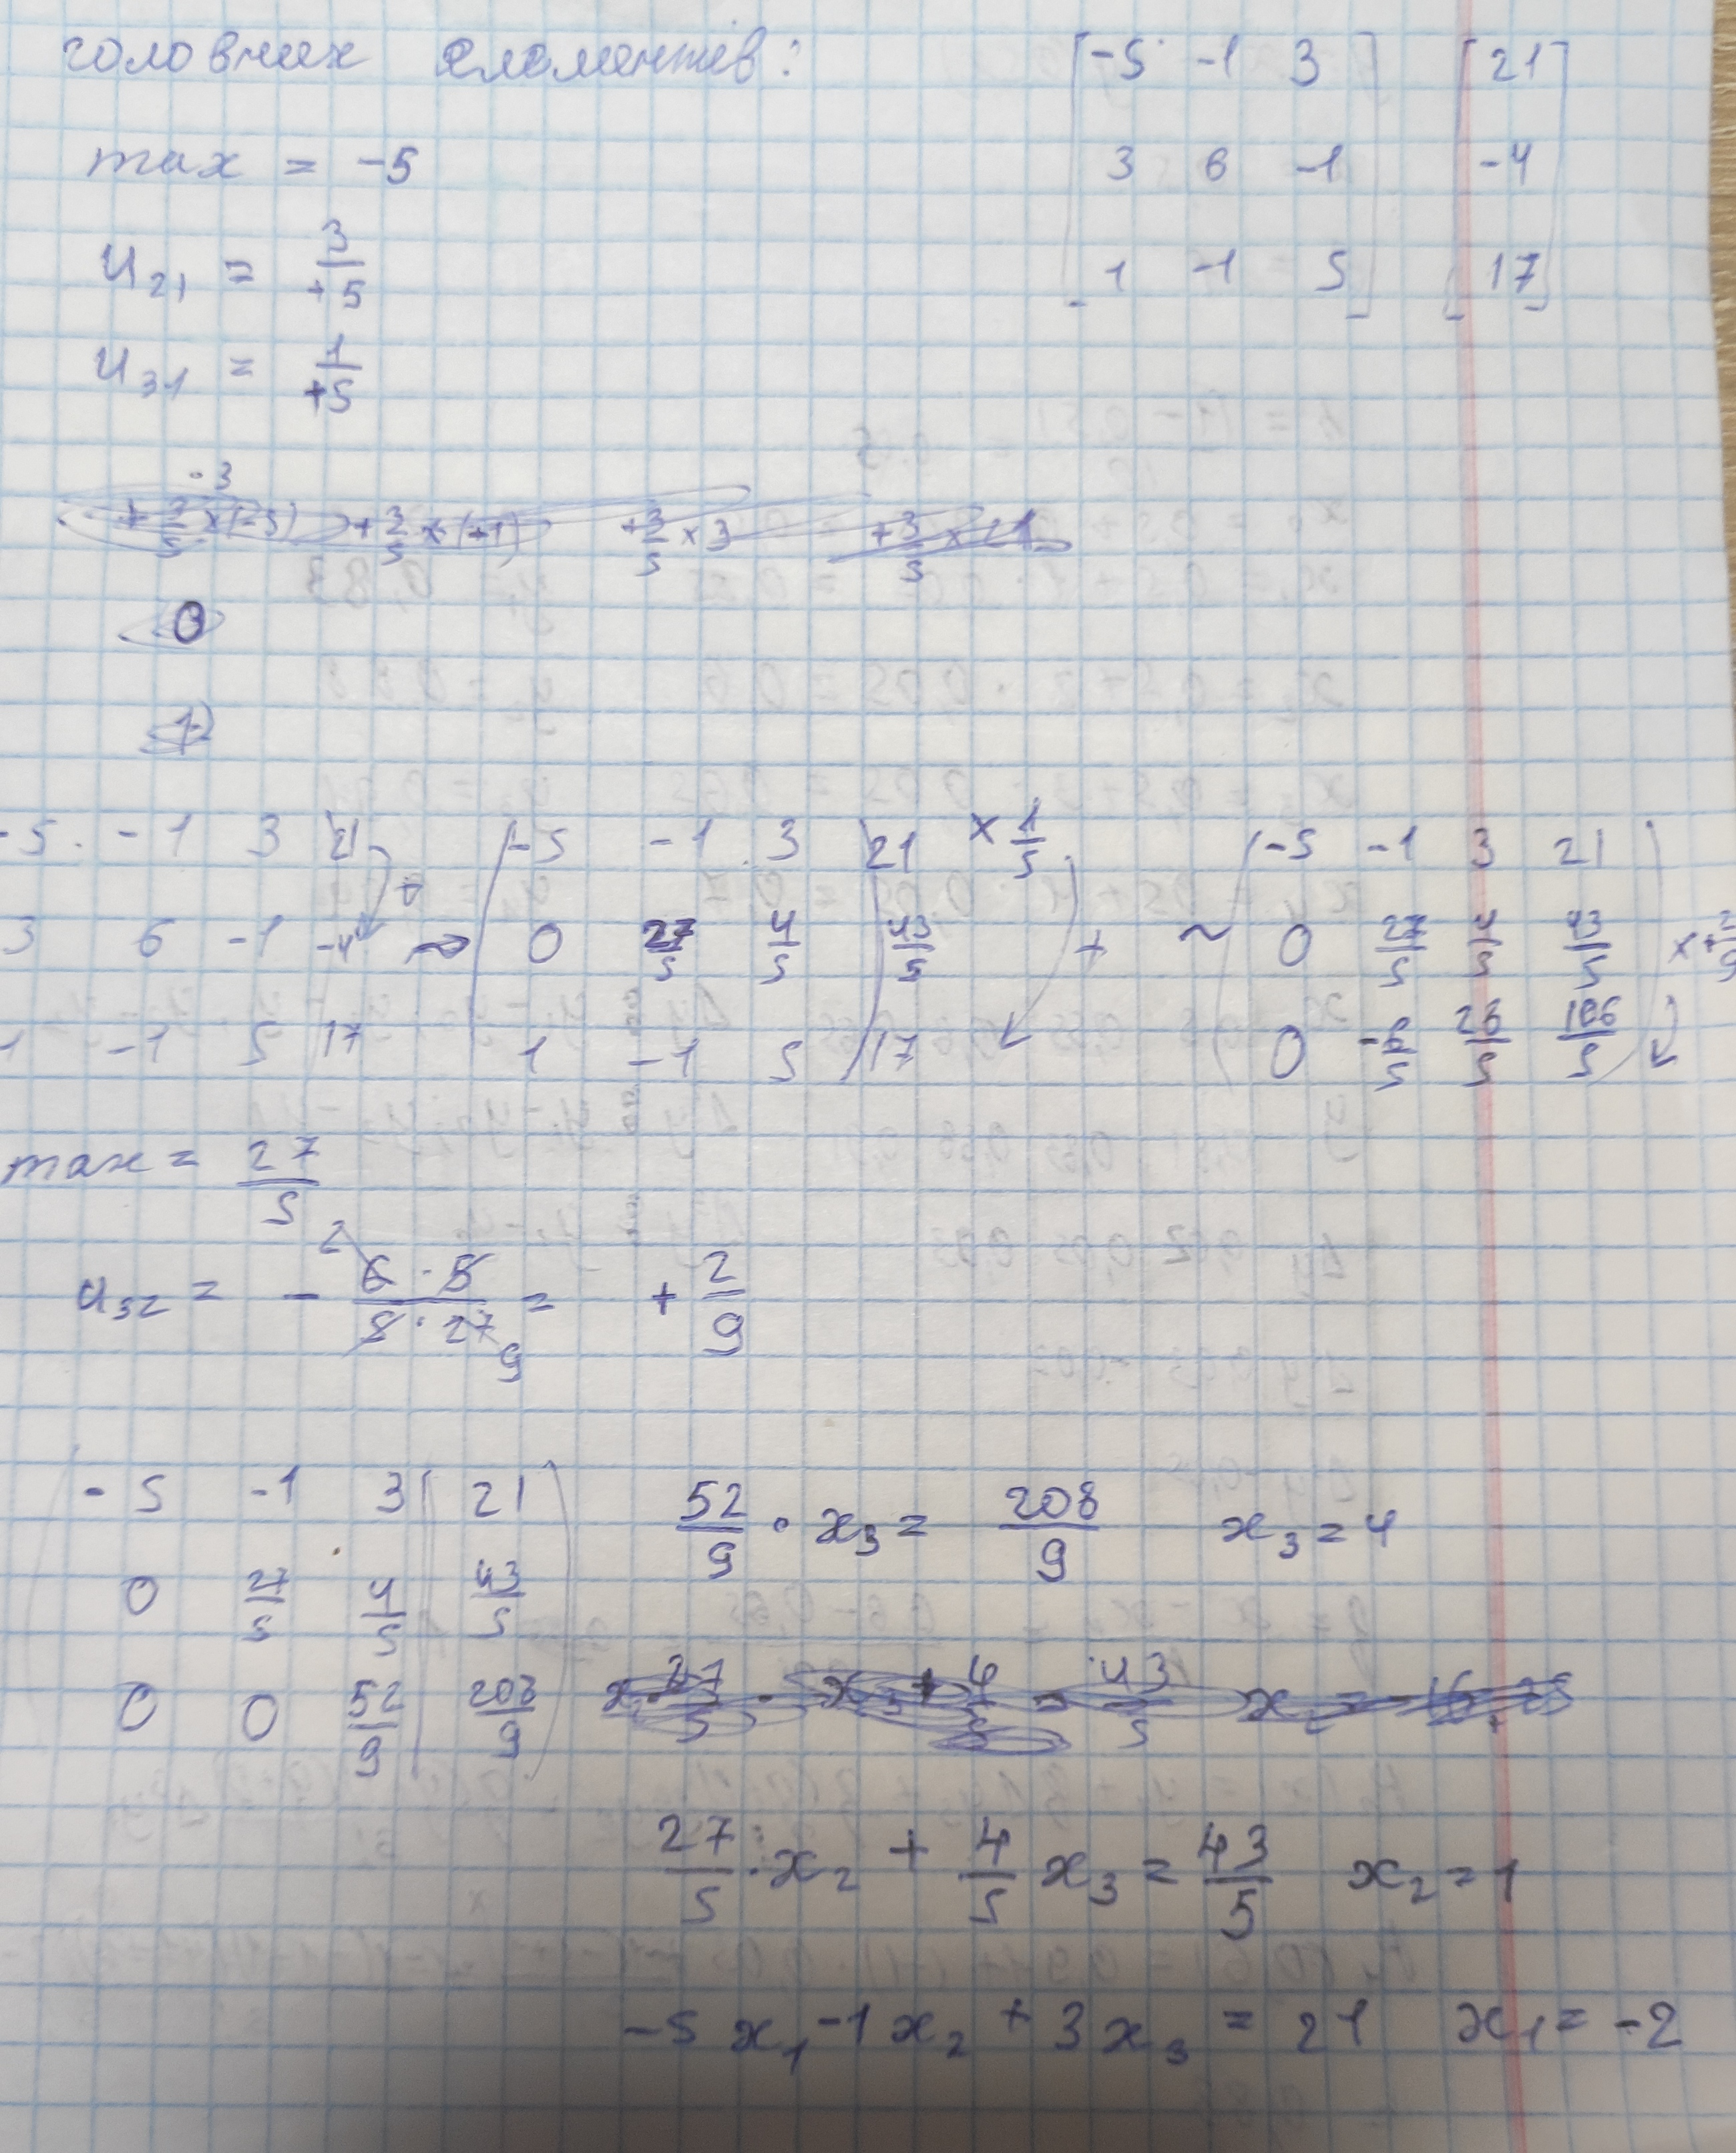 головних елементів:
-5 -1 3 21
3 6 -1 -4
1 -1 5 17
max = -5
u21 = 3/+5
u31 = 1/+5
-3
+3/5 × (-5) +3/5 × (-1) +3/5 × 3 +3/5 × 21
0
1)
-5 -1 3 21 +
3 6 -1 -4
1 -1 5 17
~
-5 -1 3 | 21 × 1/5
0 27/5 4/5 | 43/5 +
1 -1 5 | 17
~
-5 -1 3 21
0 27/5 4/5 43/5 × +2/9
0 -6/5 28/5 106/5
max = 27/5
u32 = - 6 · 5 / 5 · 27 = + 2/9
2
9
-5 -1 3 | 21
0 27/5 4/5 | 43/5
0 0 52/9 | 208/9
52/9 · x3 = 208/9 x3 = 4
27/5 · x2 + 4/5 x3 = 43/5 x2 = 1
-5 x1 -1 x2 + 3 x3 = 21 x1 = -2